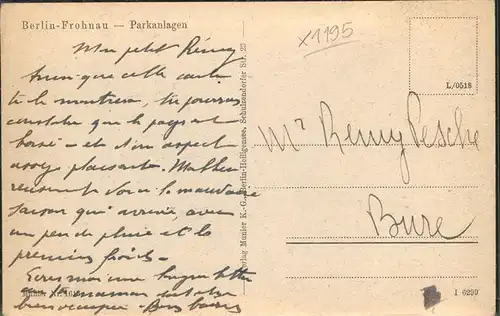 Berlin-Frohnau — Parkanlagen
Mon petit Rémy
Ainsi que cette carte
te le montrera, tu pourras
constater que le pays est
boisé - et d'un aspect
assez plaisant. Malheu
reusement voici la mauvaise
saison qui arrive, avec
un peu de pluie et les
premiers froids.
Ecris moi une longue lettre
maman
bien occupée - Bons baisers
Verlag Munier K.-G., Berlin-Heiligensee, Schulzendorfer Str. 23
x1195
L/0518
Mr Remy Pesche
Bure
I 6299